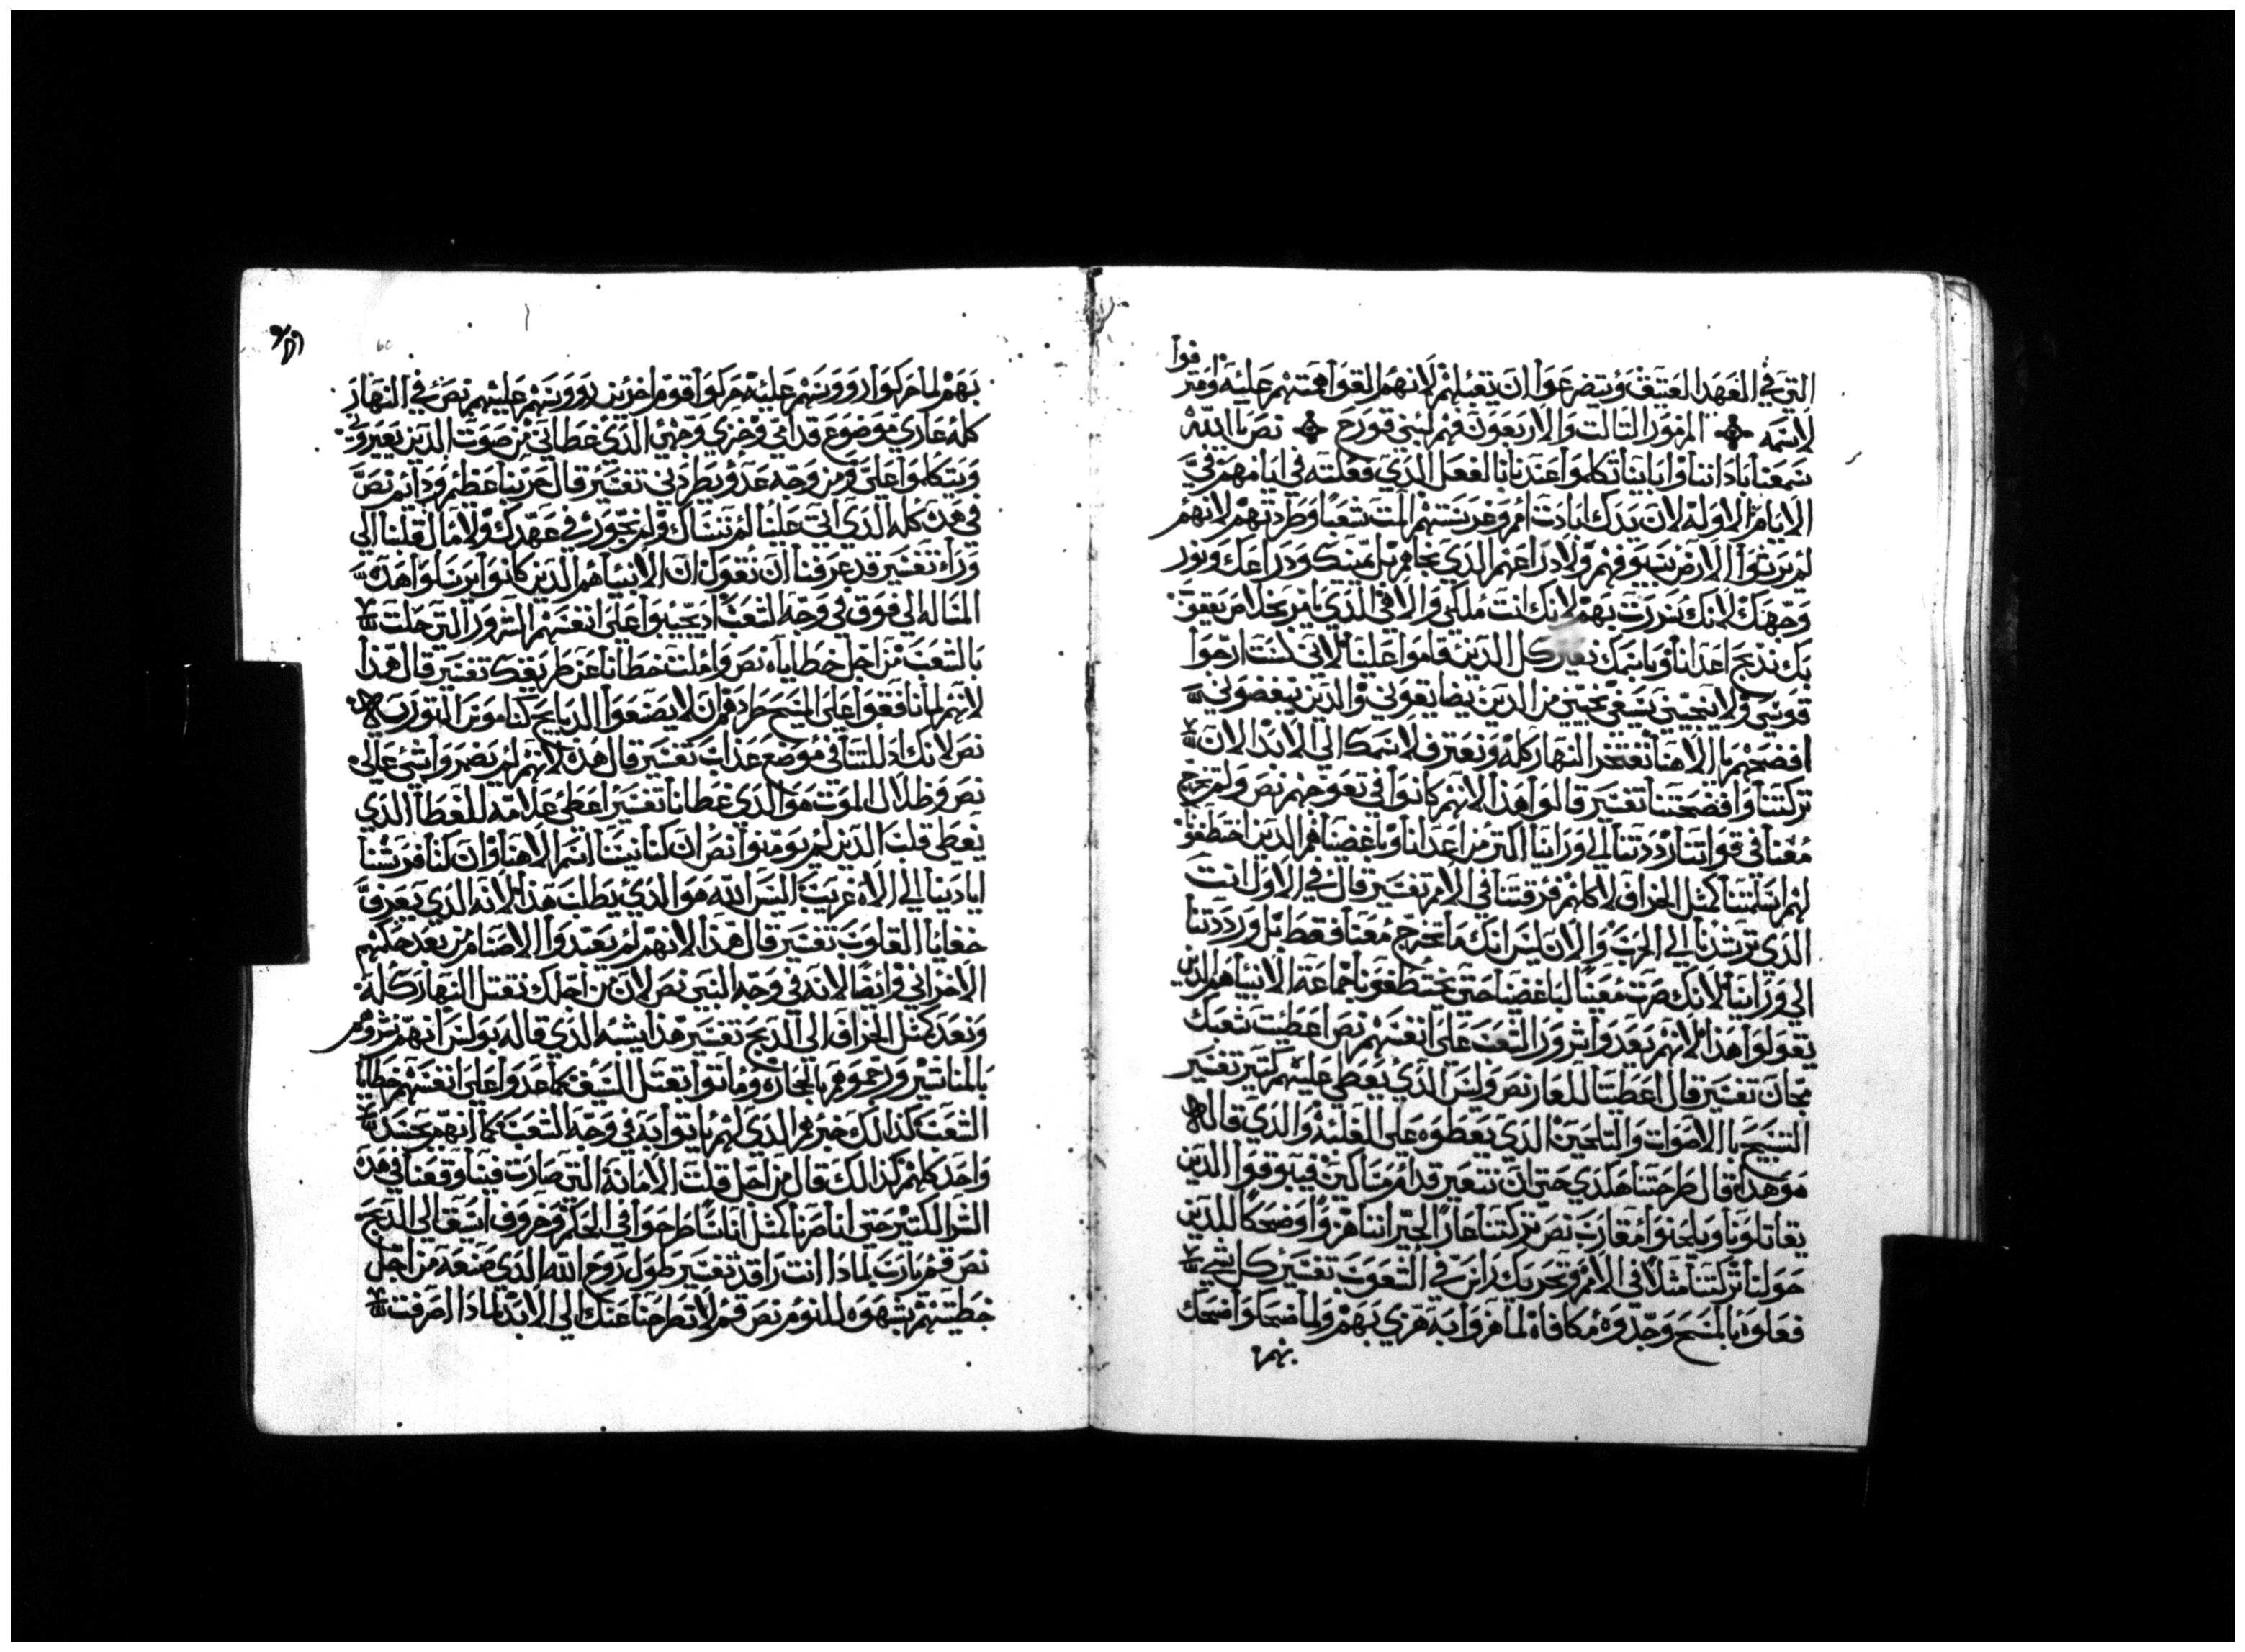 فوا
التي في العهد العتيق ويتضرعوا ان يقبلهم لانهم القوا همتهم عليه ومتر
لاسمه المزمور التالت والاربعون فهم لبني قورح نص يا الله
سمعنا باداننا واباينا تكلموا عندنا بالفعل الذي فعلته في ايامهم في
الايام الاولة لان يدك ابادت امم وغرستهم المت شعبا وطردتهم لانهم
لم يرتوا الارض بسيوفهم ولا دراعهم الذي نجاهم بل يمينك ودراعك ونور
وجهك لانك سررت بهم لانك انت ملكي والاهي الذي يامر بخلاص يعقوب
بك ندبح اعدانا وباسمك نهين كل الذين قاموا علينا لاني لست ارجوا
قوسي ولا ينجيني سيفي نجيتني من الذين يضايقوني والذين يبغضوني
افضحهم بالاهنا نفتخر النهار كله ونعترف لاسمك الي الابد الان
تركتنا وافضحتنا تفسير قالوا هذا لانهم كانوا في تعوجهم نص ولم تخرج
معنا في قواتنا رددتنا الي وراينا اكتر من اعدانا وباغضنا هم الذين اختطفوا
لهم اسلمتنا كمثل الخراف لاكلهم فرقتنا في الامم تفسير قال في الاول انت
الذي ترشدنا الي الحرب والان ليس انك ما تخرج معنا فقط بل ورددتنا
الي وراينا لانك صرت معينا لباغضنا حتي يختطفونا جماعة الانبيا هم الذين
يقولوا هذا لانهم يعدوا شرور الشعب علي انفسهم نص اعطيت شعبك
مجان تفسير قال اعطيتنا للعار نص وليس الذي يعطي عليهم كتير تفسير
التسبيح بالاصوات والتلحين الذي يعطوه علي الغلبة والذي قاله
هو هذا قال طرحتنا هكذي حتي ان نتعير قدام مساكين قيبو وقوا الذين
يقاتلونا ويلحنوا مقارب نص تركتنا عارا لجيراننا هزوا وضحكا للذين
حولنا تركتنا مثلا في الامم وتحريك راس في الشعوب تفسير كل شي
فعلوه بالمسيح وجدوه مكافاة لما هزوا به هزي بهم ولما ضحكوا اضحك
بهم
بهم لما حركوا رووسهم عليه حركوا قوم اخرين رووسهم عليهم نص في النهار
كله عاري موضوع قدامي وخزي وجهي الذي غطاني من صوت الذين يعيروني
ويتكلموا علي ومن وجه عدو يطردني تفسير قال حربنا عظيم ودايم نص
في هذه كله الذي اتي علينا لم ننساك ولم نجور في عهدك ولا مال قلبنا الي
ورا تفسير قد عرفنا ان نقول ان الانبيا هم الذين كانوا يرسلوا هذه
المساله الي فوق في وجه الشعب اد يجيبوا علي انفسهم الشرور التي حلت
بالشعب من اجل خطاياه نص واملت خطانا عن طريقك تفسير قال هذا
لانهم لما نافقوا علي المسيح طردهم ان لا يصنعوا الدبايح كناموس التوراه
نص لانك ادللتنا في موضع عذاب تفسير قال هذه لانهم لم يصروا شي عالي
نص وظلال الموت هو الذي غطانا تفسير اعطي علامه للغطا الذي
يغطي قلب الذين لم يومنوا نص ان كنا نسينا اسم الاهنا وان كنا فرشنا
ايادينا الي الاه غريب اليس الله هو الذي يطلب هذا لانه الذي يعرف
خفايا القلوب تفسير قال هذا لانهم لم يعبدوا الاصنام من بعد جلبهم
الاخراني وايضا لانه في وجه النبي نص لان من اجلك نقتل النهار كله
ونعد كمثل الخراف الي الدبح تفسير هذا يشبه الذي قاله بولس انهم نشروهم
بالمناشير ورجموهم بالحجاره وماتوا بقتل السيف كما عدوا علي انفسهم خطايا
الشعب كذالك خبرهم الذي لهم ياتوا به في وجه الشعب كما انهم بجسد
واحد كلهم كذالك قال من اجل قلت الامانة التي صارت فينا وقعنا في هذه
الشر الكتير حتي اننا صرنا كمثل اناسا طرحوا في الحكم وخروف انساق الي الدبح
نص قم يارب لمادا انت راقد تفسير طول روح الله الذي صنعه من اجل
خطيتهم شبهوه للنوم نص قم لا تطرحنا عنك الي الابد لمادا اصرفت